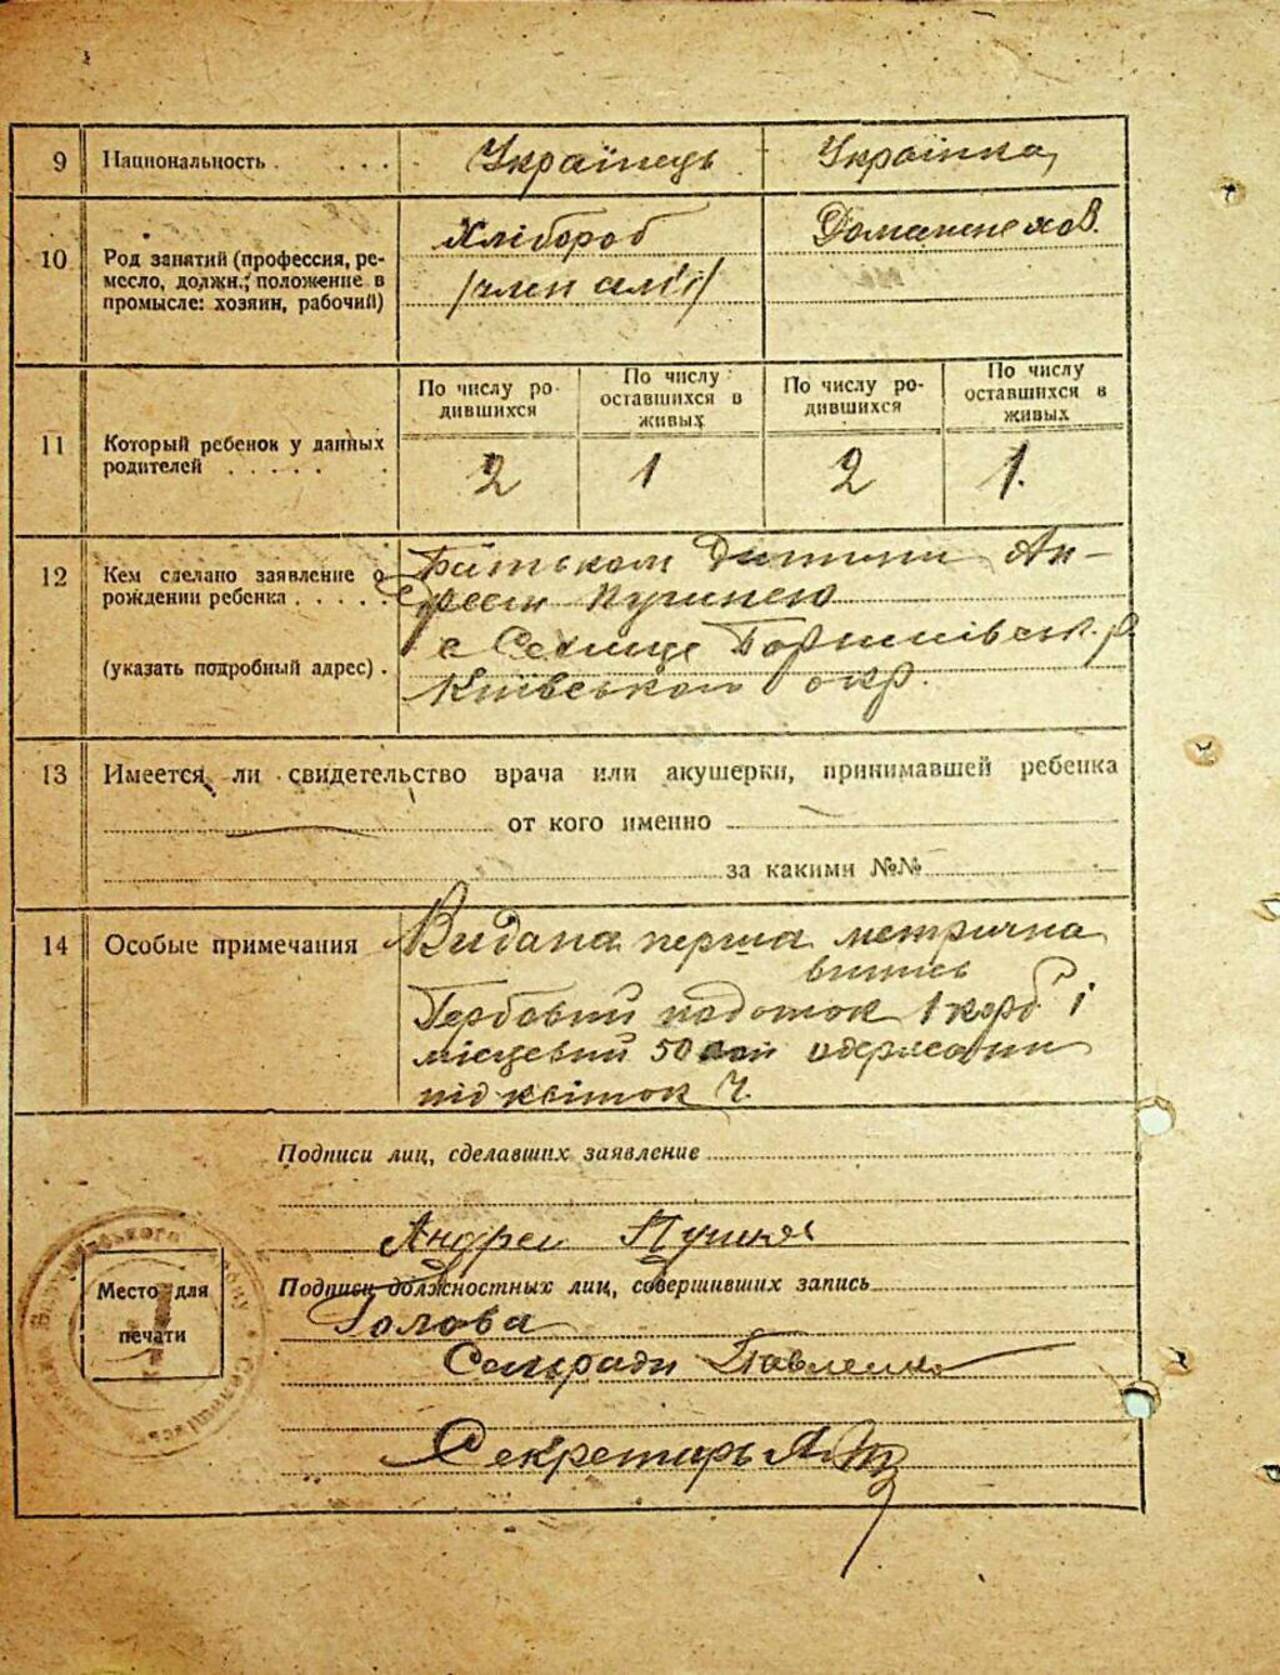 9 Национальность . . . . Українець Українка
10 Род занятий (профессия, ре-
месло, должн.; положение в
промысле: хозяин, рабочий)
Хлібороб
/член сім'ї/
Домашнє хоз.
11 Который ребенок у данных
родителей . . . . . .
По числу ро-
дившихся
По числу
оставшихся в
живых
По числу ро-
дившихся
По числу
оставшихся в
живых
2 1 2 1.
12 Кем сделано заявление о
рождении ребенка . . . . .
(указать подробный адрес) .
Батьком Дитини Ан-
с Селище Баришівськ. р.
Київської окр.
13 Имеется ли свидетельство врача или акушерки, принимавшей ребенка
от кого именно
за какими №№
14 Особые примечания Видана перша метрична
випись
Гербовий податок 1 карб і
місцевий 50 коп одержани
під квіток Ч.
Подписи лиц, сделавших заявление
Андрей
Подписи должностных лиц, совершивших запись
Голова
Сельради Павленко
Секретарь
Место для
печати